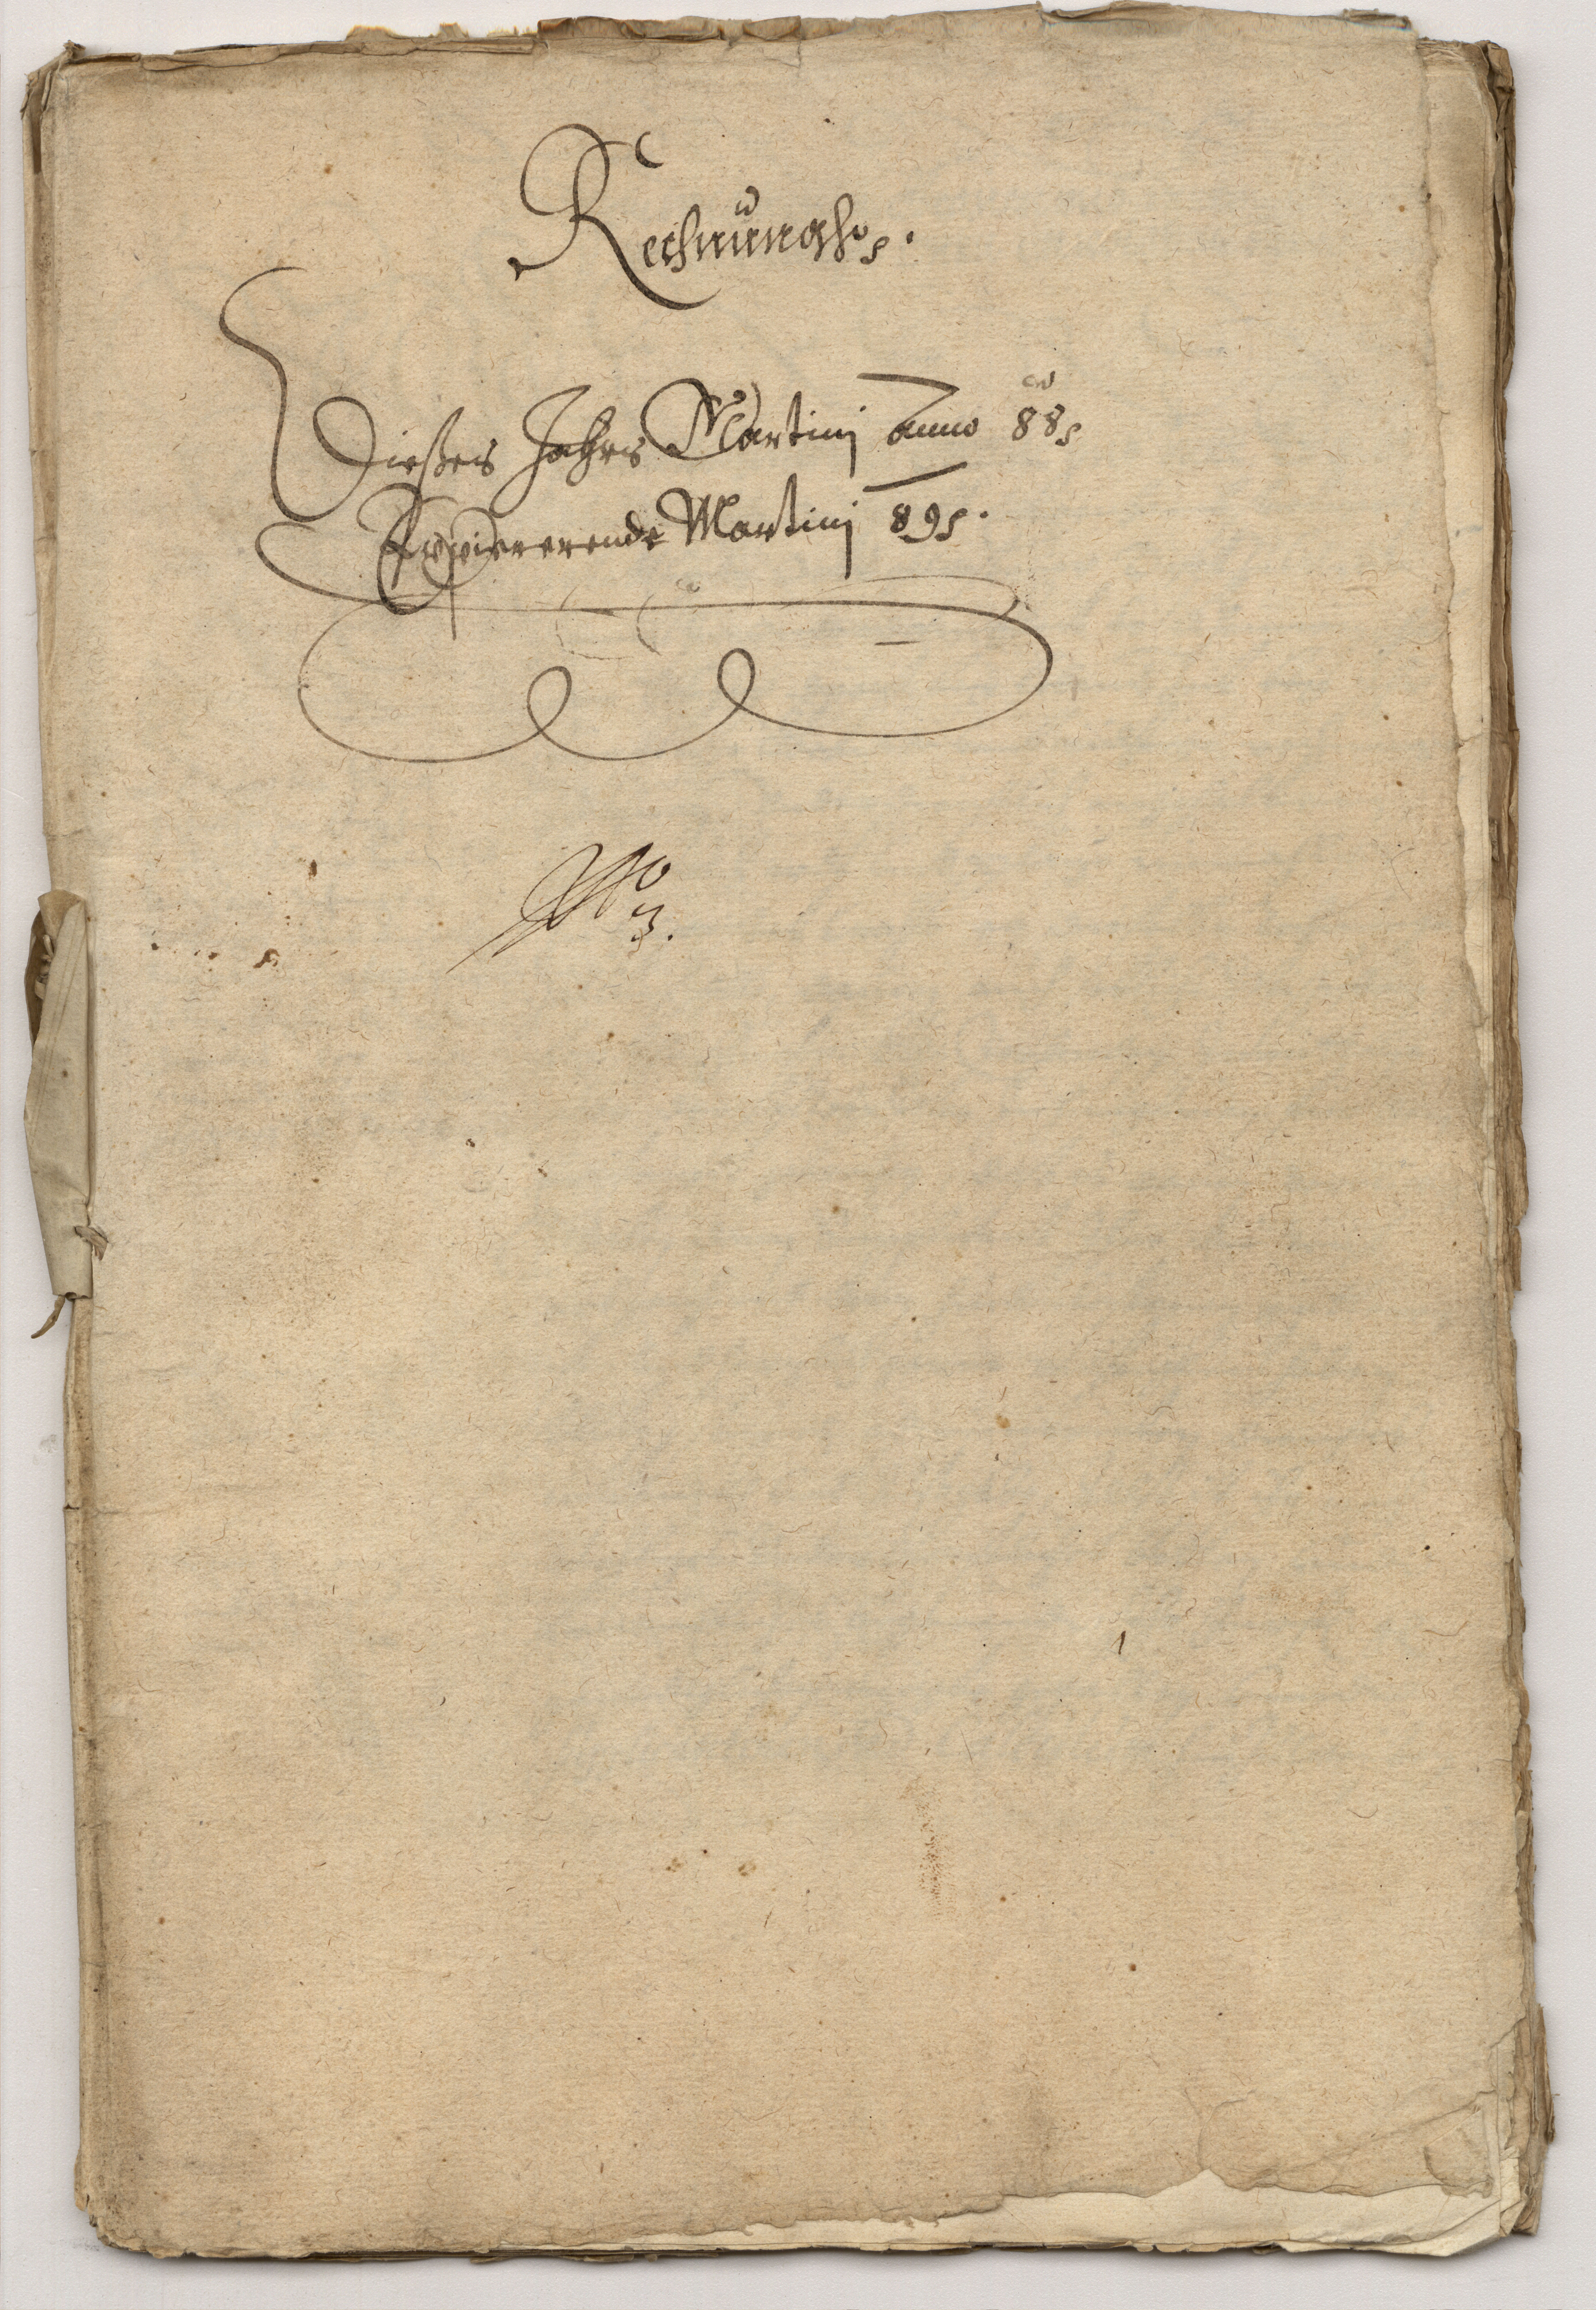 Rechnungh.
Dießes Jahrs Martinj Anno 88
Expirerende Martinj 89.
No
3.